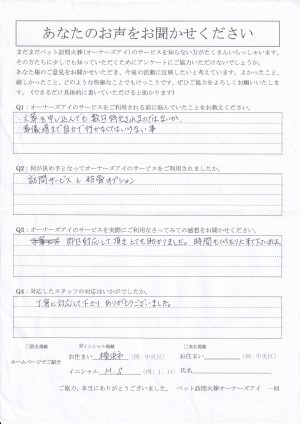 あなたのお声をお聞かせください
まだまだペット訪問火葬(オーナーズアイ)のサービスを知らない方がたくさんいらっしゃいます。
その方たちにも少しでも知っていただくためにアンケートにご協力いただけないでしょうか。
あなた様のご意見をお聞かせいただき、今後の活動に反映したいと考えています。よかったこと、
嬉しかったこと、どのような些細なことでもけっこうです。ぜひご協力をよろしくお願いいたします。
(できるだけ具体的に書いていただけると助かります)
Q1:オーナーズアイのサービスをご利用される前に悩んでいたことをお教えください。
・火葬を申し込んでも数日待たされるのではないか、
・斎儀場まで自分で行かなくてはいけない事
Q2:何が決め手となってオーナーズアイのサービスをご利用されましたか。
訪問サービスと祈骨オプション
Q3:オーナーズアイのサービスを実際にご利用なさってみての感想をお聞かせください。
即日対応して頂きとても助かりました。時間もぴったりに来て下さいました。
Q4:対応したスタッフの対応はいかがでしたか。
丁寧に対応して下さりありがとうございました。
ホームページでご紹介
□匿名掲載 ☑イニシャル掲載 □実名掲載
お住まい 横浜市 (例:中央区) お住まい (例:中央区)
イニシャル M.S (例:J.H) 氏名
ご協力、本当にありがとうございました。 ペット訪問火葬オーナーズアイ 一同